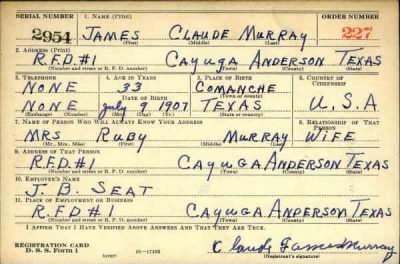 SERIAL NUMBER 1. NAME (Print) ORDER NUMBER
2954 JAMES CLAUDE MURRAY 227
(First) (Middle) (Last)
2. ADDRESS (Print)
R.F.D.#1 CAYUGA ANDERSON TEXAS
(Number and street or R. F. D. number) (Town) (County) (State)
3. TELEPHONE 4. AGE IN YEARS 5. PLACE OF BIRTH 6. COUNTRY OF CITIZENSHIP
NONE 33 COMANCHE
DATE OF BIRTH (Town or county)
NONE July 9 1907 TEXAS U.S.A
(Exchange) (Number) (Mo.) (Day) (Yr.) (State or country)
7. NAME OF PERSON WHO WILL ALWAYS KNOW YOUR ADDRESS 8. RELATIONSHIP OF THAT PERSON
MRS RUBY MURRAY WIFE
(Mr., Mrs., Miss) (First) (Middle) (Last)
9. ADDRESS OF THAT PERSON
R.F.D.#1 CAYUGA ANDERSON TEXAS
(Number and street or R. F. D. number) (Town) (County) (State)
10. EMPLOYER'S NAME
J. B. SEAT
11. PLACE OF EMPLOYMENT OR BUSINESS
R.F.D #1 CAYUGA ANDERSON TEXAS
(Number and street or R. F. D. number) (Town) (County) (State)
I AFFIRM THAT I HAVE VERIFIED ABOVE ANSWERS AND THAT THEY ARE TRUE.
REGISTRATION CARD
D. S. S. Form 1 Claude James Murray
(Registrant's signature)